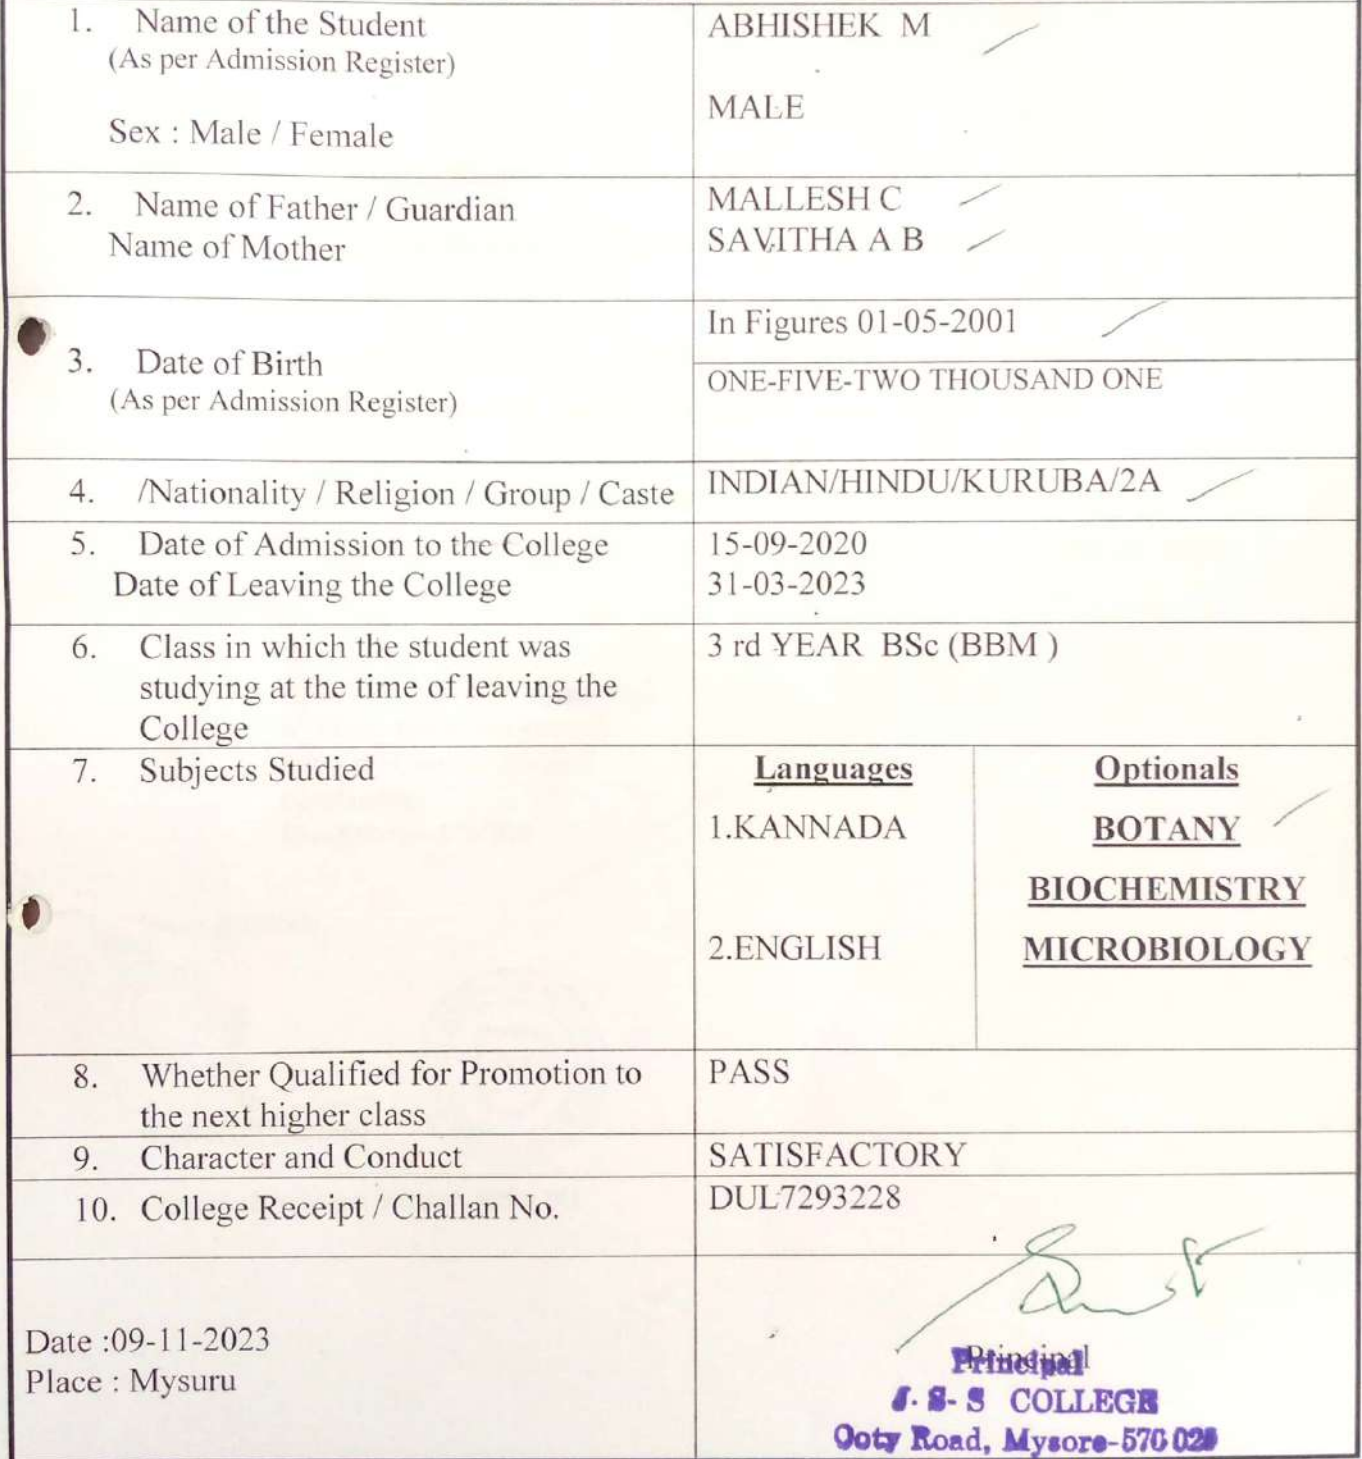 1. Name of the Student
(As per Admission Register)
ABHISHEK M
Sex : Male / Female
MALE
2. Name of Father / Guardian
MALLESH C
Name of Mother
SAVITHA A B
3. Date of Birth
(As per Admission Register)
In Figures 01-05-2001
ONE-FIVE-TWO THOUSAND ONE
4. /Nationality / Religion / Group / Caste
INDIAN/HINDU/KURUBA/2A
5. Date of Admission to the College
15-09-2020
Date of Leaving the College
31-03-2023
6. Class in which the student was
studying at the time of leaving the
College
3 rd YEAR BSc (BBM )
7. Subjects Studied
Languages
1.KANNADA
2.ENGLISH
Optionals
BOTANY
BIOCHEMISTRY
MICROBIOLOGY
8. Whether Qualified for Promotion to
the next higher class
PASS
9. Character and Conduct
SATISFACTORY
10. College Receipt / Challan No.
DUL7293228
Date :09-11-2023
Place : Mysuru
Principal
Principal
J. S- S COLLEGE
Ooty Road, Mysore-570